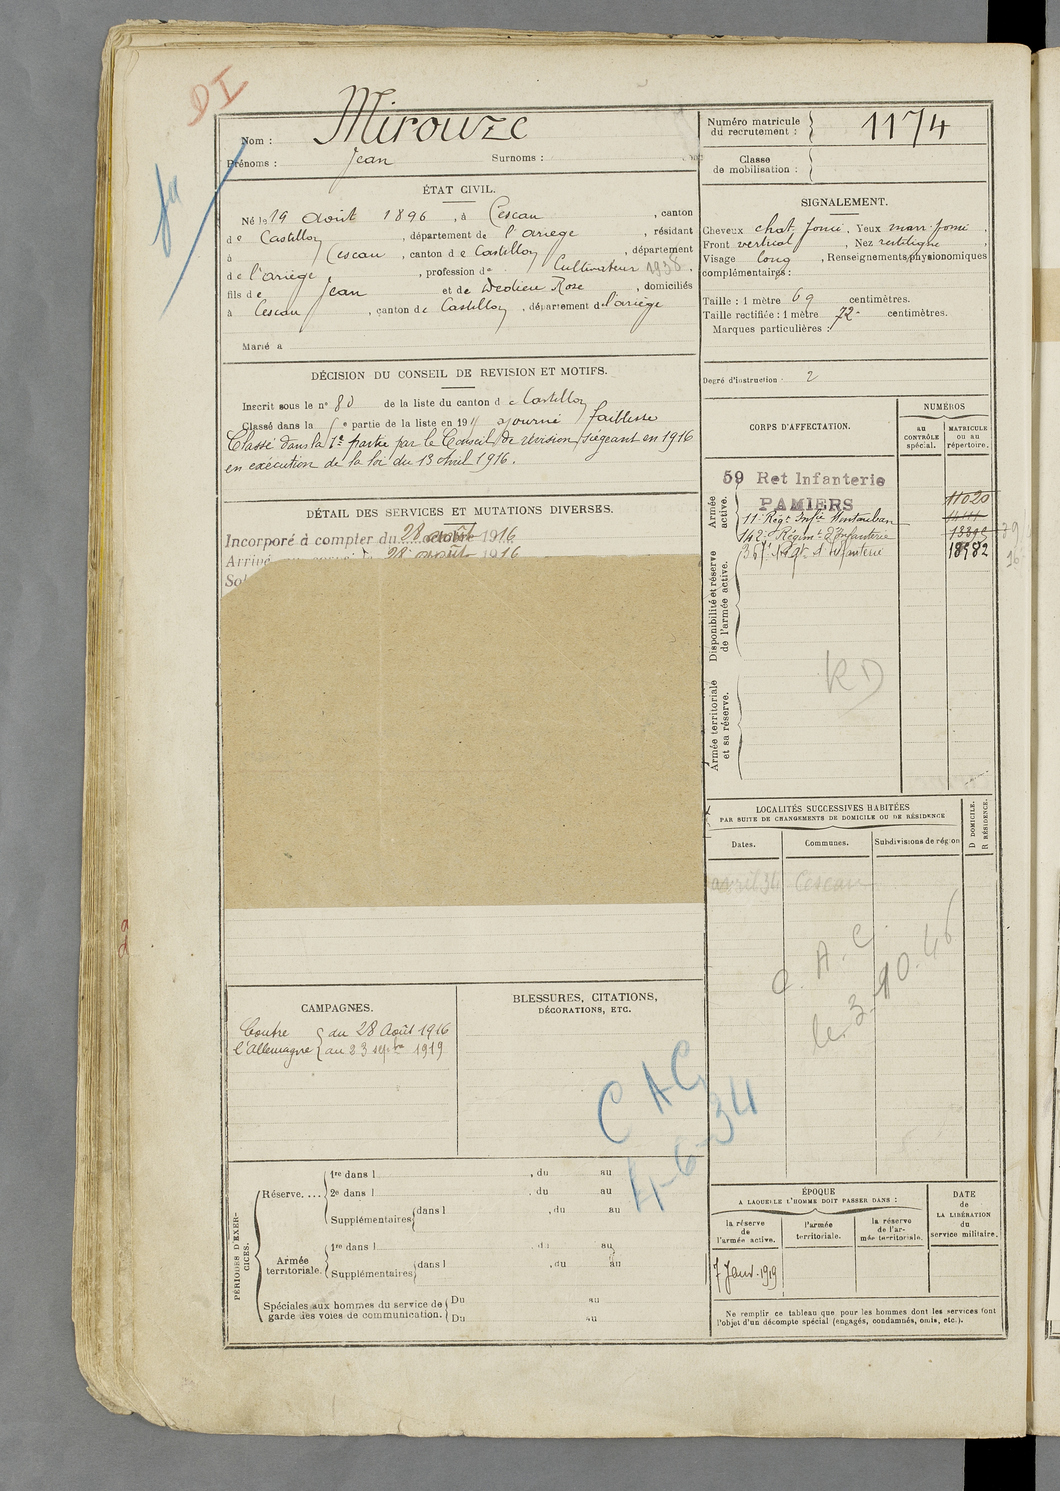 DI
fa
Nom : Mirouze
Prénoms : Jean Surnoms :
Numéro matricule du recrutement : 1174
Classe de mobilisation :
ÉTAT CIVIL.
Né le 19 août 1896, à Cescau, canton
de Castillon, département de l'ariège, résidant
à Cescau, canton de Castillon, département
de l'ariège, profession de Cultivateur 1938.
fils de Jean et de Dedieu Rose, domiciliés
à Cescau, canton de Castillon, département de l'ariège
Marié à
SIGNALEMENT.
Cheveux chat. foncé, Yeux marr. foncé,
Front vertical, Nez rectiligne,
Visage long, Renseignements physionomiques
complémentaires :
Taille : 1 mètre 69 centimètres.
Taille rectifiée : 1 mètre 72 centimètres.
Marques particulières :
Degré d'instruction : 2
DÉCISION DU CONSEIL DE REVISION ET MOTIFS.
Inscrit sous le n° 80 de la liste du canton de Castillon
Classé dans la 5e partie de la liste en 191 ajourné faiblesse
Classé dans la 1re partie par le Conseil de révision siégeant en 1916
en exécution de la loi du 13 Avril 1916.
DÉTAIL DES SERVICES ET MUTATIONS DIVERSES.
Incorporé à compter du 28 août 1916
28 août 1916
CORPS D'AFFECTATION.
NUMÉROS
AU CONTRÔLE spécial.
MATRICULE ou au répertoire.
Armée active.
59 Ret Infanterie
PAMIERS 11020
11e Régt Infie Montauban
142e Régimt d'Infanterie
367e Régt d'Infanterie 18982
Disponibilité et réserve de l'armée active.
Armée territoriale et sa réserve.
RD
LOCALITÉS SUCCESSIVES HABITÉES
PAR SUITE DE CHANGEMENTS DE DOMICILE OU DE RÉSIDENCE
D DOMICILE.
R RÉSIDENCE.
Dates. Communes. Subdivisions de région
avril 34 Cescau
C. A. C.
le 3-10.46
CAMPAGNES.
Contre l'Allemagne
du 28 Août 1916
au 23 septbre 1919
BLESSURES, CITATIONS,
DÉCORATIONS, ETC.
C A C
4-6-34
PÉRIODES D'EXERCICES.
Réserve.... 1re dans l , du au
2e dans l , du au
Supplémentaires dans l , du au
Armée territoriale. 1re dans l , du au
Supplémentaires dans l , du au
Spéciales aux hommes du service de garde des voies de communication. Du au
Du au
ÉPOQUE
A LAQUELLE L'HOMME DOIT PASSER DANS :
la réserve de l'armée active.
l'armée territoriale.
la réserve de l'armée territoriale.
DATE de LA LIBÉRATION du service militaire.
7 Janv. 1919
Ne remplir ce tableau que pour les hommes dont les services font
l'objet d'un décompte spécial (engagés, condamnés, omis, etc.).